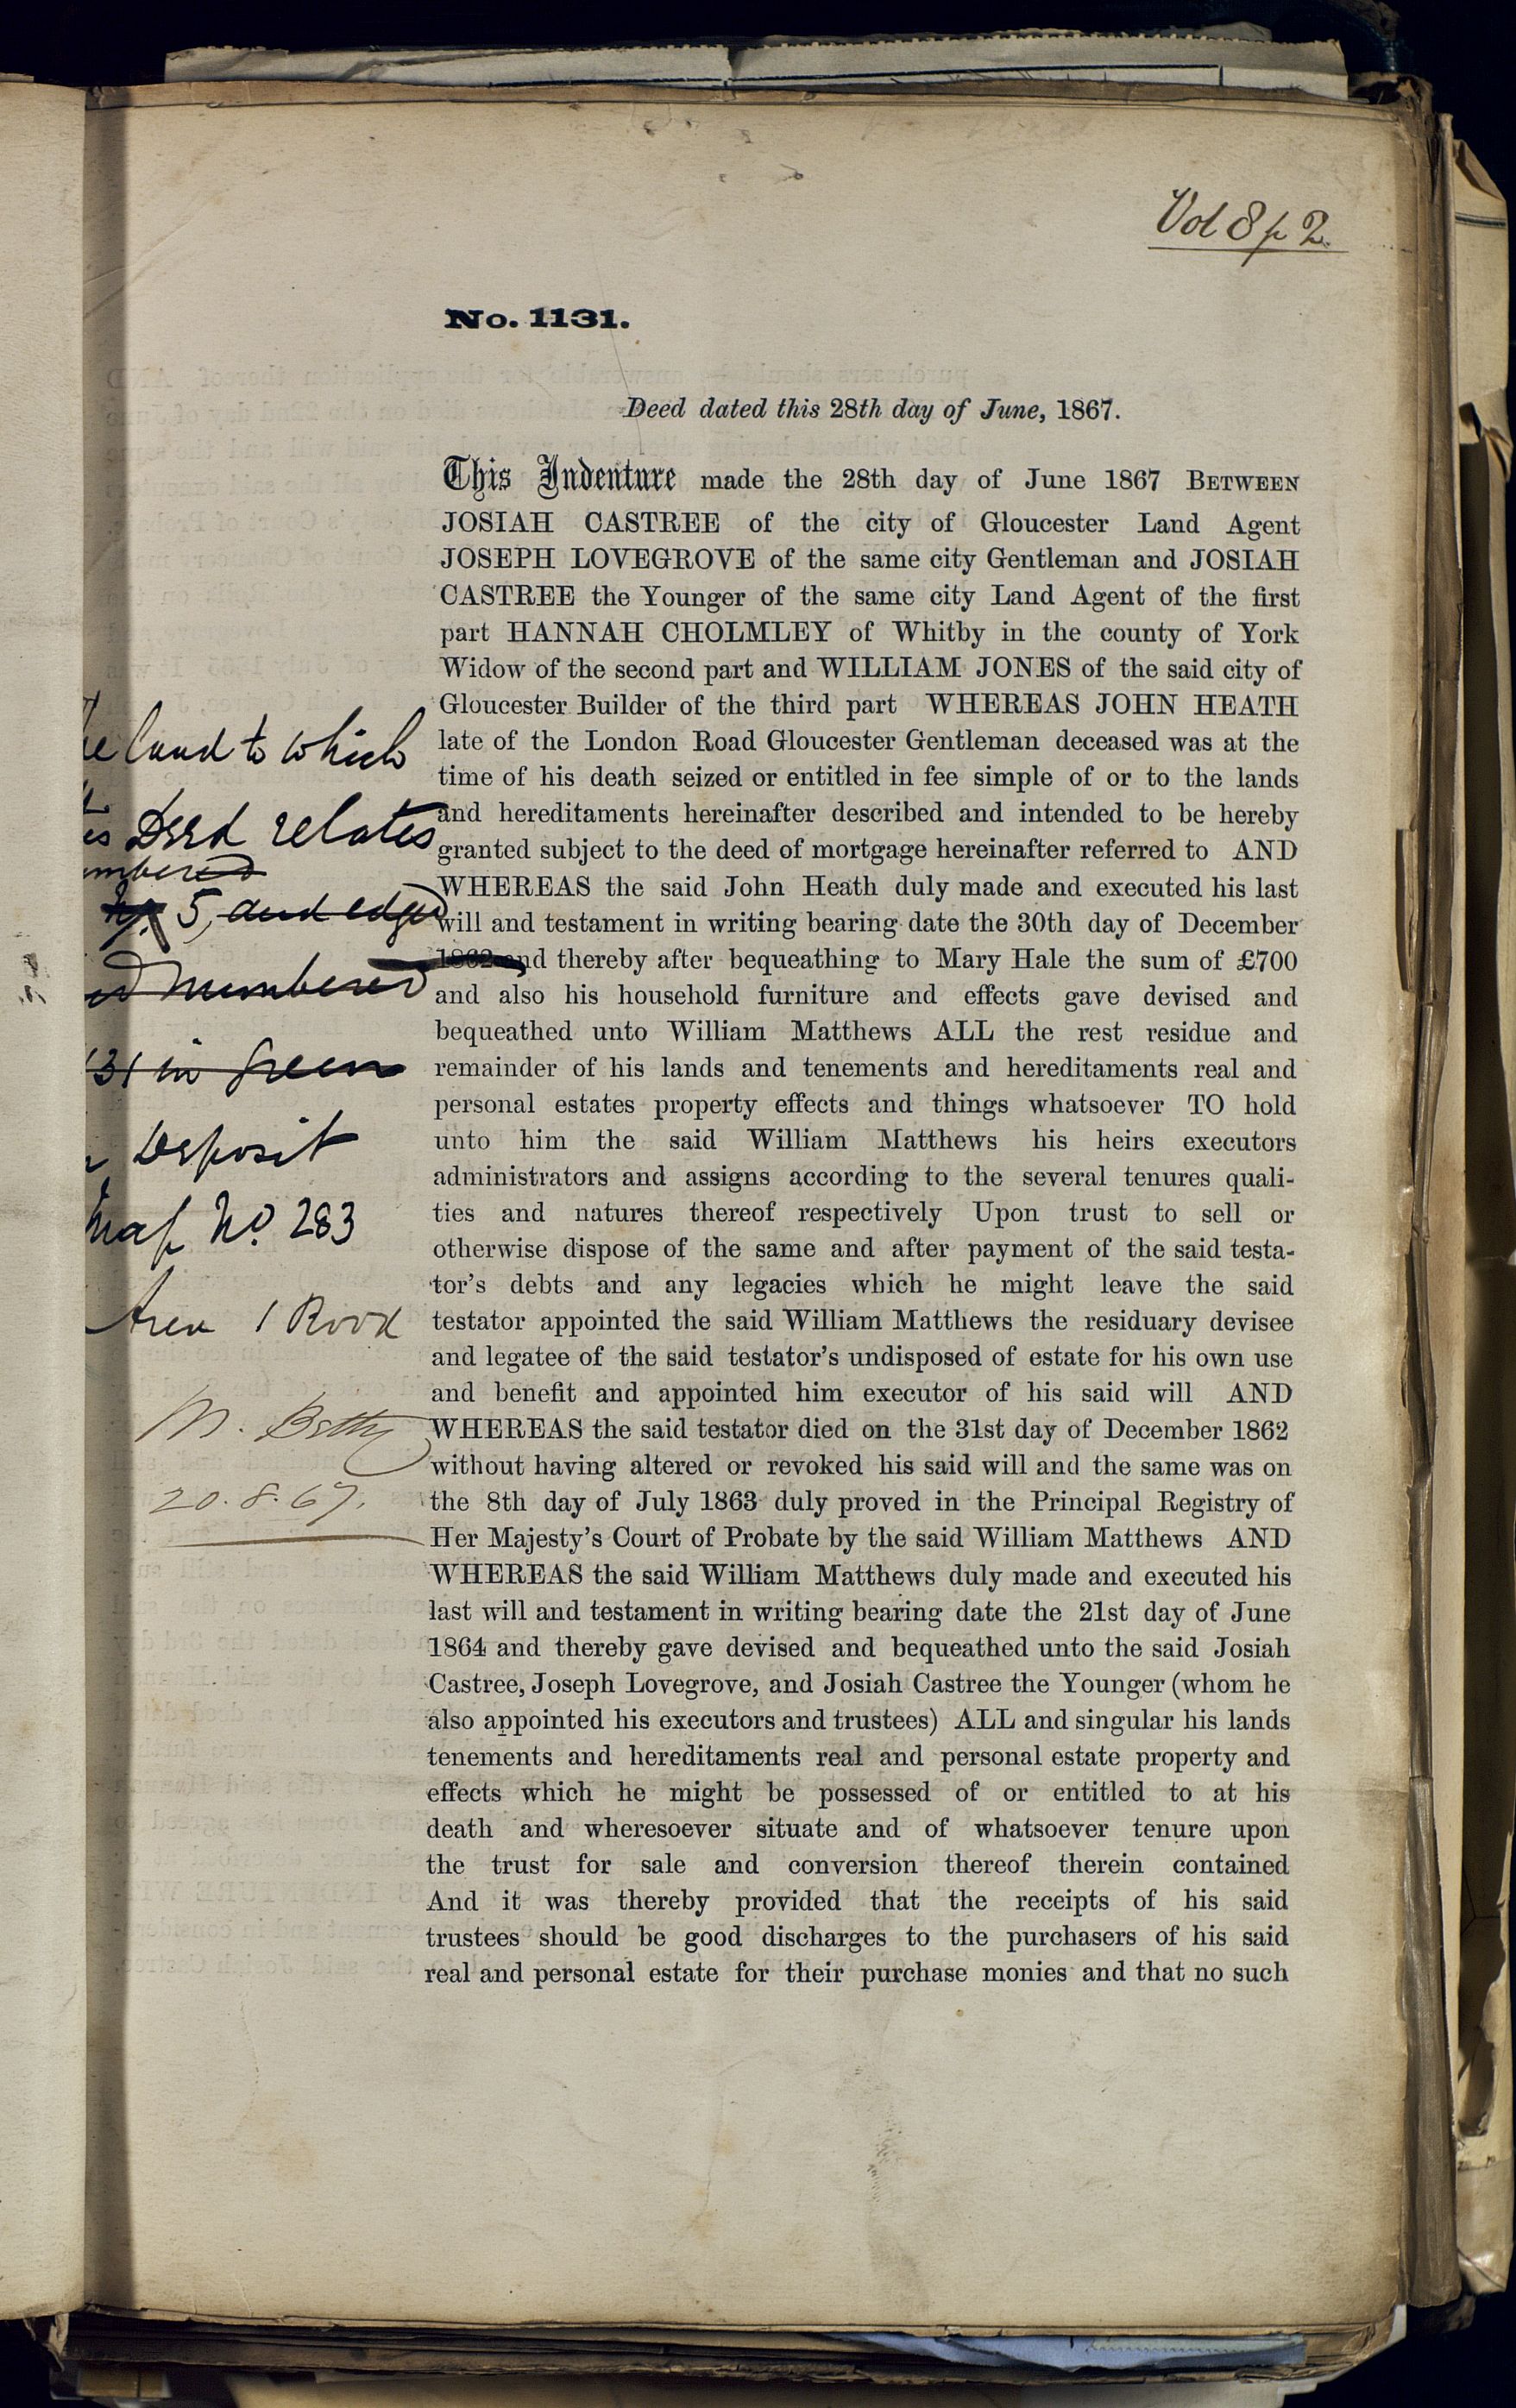 Vol 8 p 2
No. 1131.
Deed dated this 28th day of June, 1867.
This Indenture made the 28th day of June 1867 BETWEEN
JOSIAH CASTREE of the city of Gloucester Land Agent
JOSEPH LOVEGROVE of the same city Gentleman and JOSIAH
CASTREE the Younger of the same city Land Agent of the first
part HANNAH CHOLMLEY of Whitby in the county of York
Widow of the second part and WILLIAM JONES of the said city of
Gloucester Builder of the third part WHEREAS JOHN HEATH
late of the London Road Gloucester Gentleman deceased was at the
time of his death seized or entitled in fee simple of or to the lands
and hereditaments hereinafter described and intended to be hereby
granted subject to the deed of mortgage hereinafter referred to AND
WHEREAS the said John Heath duly made and executed his last
will and testament in writing bearing date the 30th day of December
1862 and thereby after bequeathing to Mary Hale the sum of £700
and also his household furniture and effects gave devised and
bequeathed unto William Matthews ALL the rest residue and
remainder of his lands and tenements and hereditaments real and
personal estates property effects and things whatsoever TO hold
unto him the said William Matthews his heirs executors
administrators and assigns according to the several tenures quali-
ties and natures thereof respectively Upon trust to sell or
otherwise dispose of the same and after payment of the said testa-
tor's debts and any legacies which he might leave the said
testator appointed the said William Matthews the residuary devisee
and legatee of the said testator's undisposed of estate for his own use
and benefit and appointed him executor of his said will AND
WHEREAS the said testator died on the 31st day of December 1862
without having altered or revoked his said will and the same was on
the 8th day of July 1863 duly proved in the Principal Registry of
Her Majesty's Court of Probate by the said William Matthews AND
WHEREAS the said William Matthews duly made and executed his
last will and testament in writing bearing date the 21st day of June
1864 and thereby gave devised and bequeathed unto the said Josiah
Castree, Joseph Lovegrove, and Josiah Castree the Younger (whom he
also appointed his executors and trustees) ALL and singular his lands
tenements and hereditaments real and personal estate property and
effects which he might be possessed of or entitled to at his
death and wheresoever situate and of whatsoever tenure upon
the trust for sale and conversion thereof therein contained
And it was thereby provided that the receipts of his said
trustees should be good discharges to the purchasers of his said
real and personal estate for their purchase monies and that no such
land to which
Deed relates
5, and edged
numbered
in Green
Deposit
Map No. 283
Area 1 Rood
20.8.67.